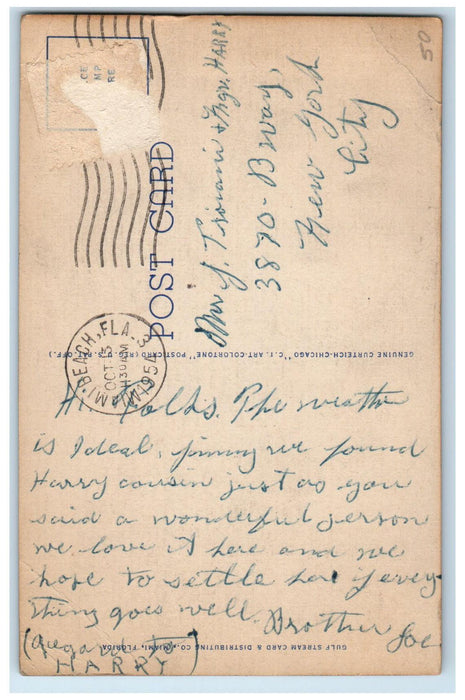 50
POST CARD
MIAMI BEACH, FLA. 3
OCT 3
1954
3870 - B'way,
New York
City
GENUINE CURTEICH-CHICAGO "C.T. ART-COLORTONE" POST CARD (REG. U.S. PAT. OFF.)
Hi Folks. The weather
is Ideal, we found
Harry cousin just as you
said a wonderful person
we love it here and we
hope to settle here if every-
thing goes well. Brother Joe
(Regards to
HARRY)
GULF STREAM CARD & DISTRIBUTING CO., MIAMI, FLORIDA